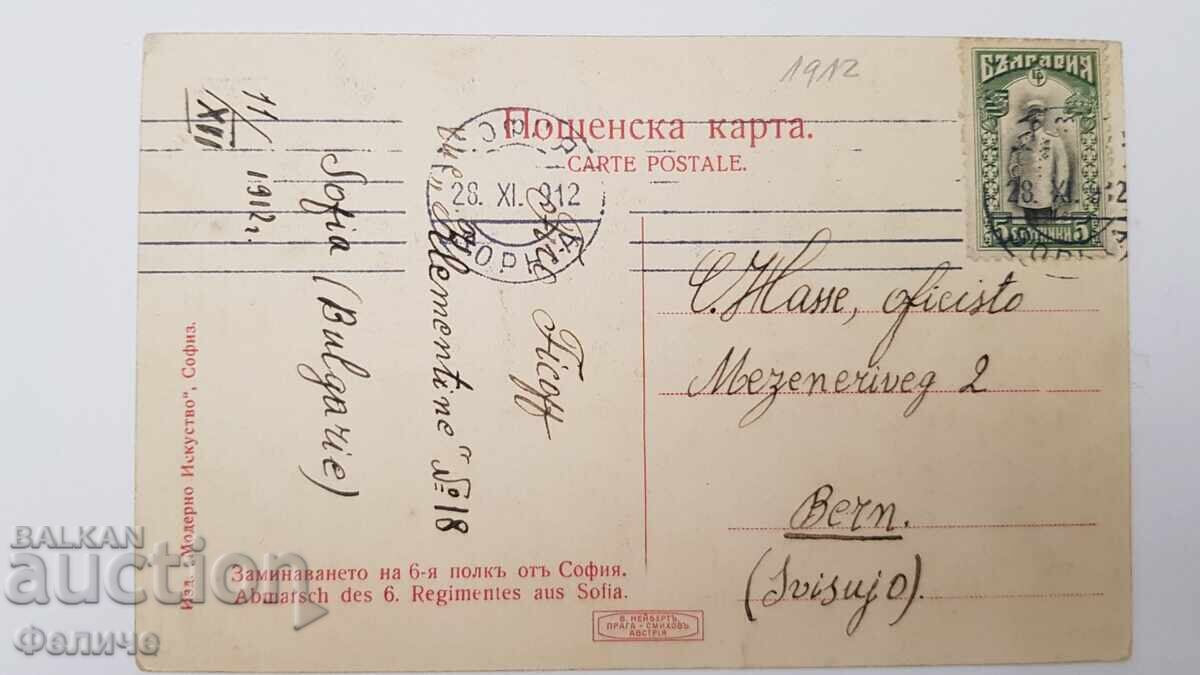 1912
Пощенска карта.
CARTE POSTALE.
БЪЛГАРИЯ
5 5
28. XI. 912
28. XI. 912
11/XII 1912 г.
Sofia (Bulgarie)
Klementine" № 18
Ticoff
C. Hasse, oficisto
Mezeneriveg 2
Bern.
(Svisujo).
Заминаването на 6-я полкъ отъ София.
Abmarsch des 6. Regimentes aus Sofia.
Изд. „Модерно Искуство", София.
В. НЕЙБЕРТЪ,
ПРАГА - СМИХОВЪ
АВСТРІЯ
BALKAN
auction
Феличе